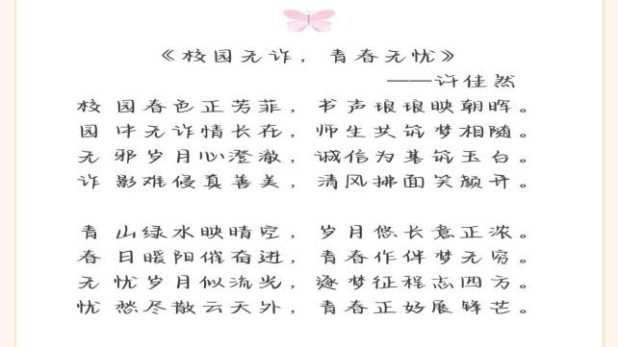 《校园无诈，青春无忧》
——许佳然
校园春色正芳菲，书声琅琅映朝晖。
园中无诈情长在，师生共筑梦相随。
无邪岁月心澄澈，诚信为基筑玉台。
诈影难侵真善美，清风拂面笑颜开。
青山绿水映晴空，岁月悠长意正浓。
春日暖阳催奋进，青春作伴梦无穷。
无忧岁月似流光，逐梦征程志四方。
忧愁尽散云天外，青春正好展锋芒。